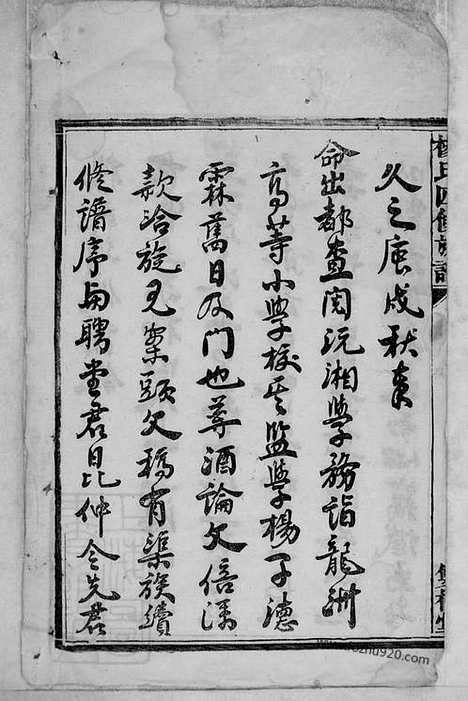 久之庚戌秋奉
命出都查閱沅湘學務詣龍洲
高等小學校其監學楊子德
霖舊日及門也尊酒論文倍深
款洽旋見案頭文稿有渠族續
修譜序由聘堂君昆仲令先君
楊氏四修族譜